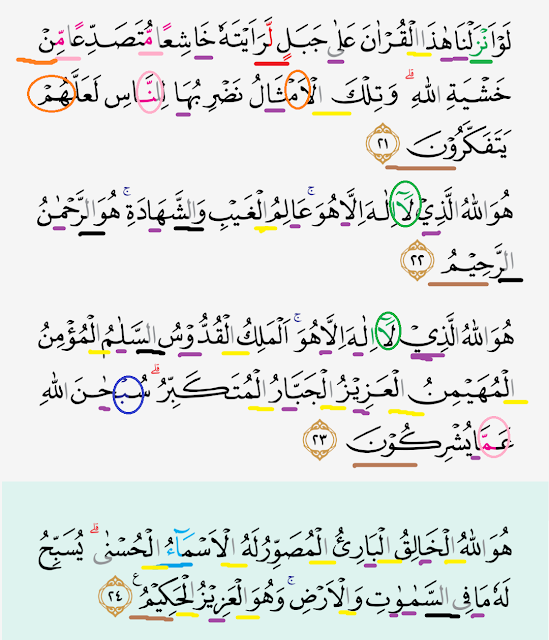 لَوْ اَنْزَلْنَا هٰذَا الْقُرْاٰنَ عَلٰى جَبَلٍ لَّرَاَيْتَهٗ خَاشِعًا مُّتَصَدِّعًا مِّنْ
خَشْيَةِ اللّٰهِ ۗوَتِلْكَ الْاَمْثَالُ نَضْرِبُهَا لِلنَّاسِ لَعَلَّهُمْ
يَتَفَكَّرُوْنَ ٢١
هُوَ اللّٰهُ الَّذِيْ لَآ اِلٰهَ اِلَّا هُوَۚ عَالِمُ الْغَيْبِ وَالشَّهَادَةِۚ هُوَ الرَّحْمٰنُ
الرَّحِيْمُ ٢٢
هُوَ اللّٰهُ الَّذِيْ لَآ اِلٰهَ اِلَّا هُوَۚ اَلْمَلِكُ الْقُدُّوْسُ السَّلٰمُ الْمُؤْمِنُ
الْمُهَيْمِنُ الْعَزِيْزُ الْجَبَّارُ الْمُتَكَبِّرُۗ سُبْحٰنَ اللّٰهِ
عَمَّا يُشْرِكُوْنَ ٢٣
هُوَ اللّٰهُ الْخَالِقُ الْبَارِئُ الْمُصَوِّرُ لَهُ الْاَسْمَاۤءُ الْحُسْنٰىۗ يُسَبِّحُ
لَهٗ مَا فِى السَّمٰوٰتِ وَالْاَرْضِۚ وَهُوَ الْعَزِيْزُ الْحَكِيْمُ ࣖ ٢٤